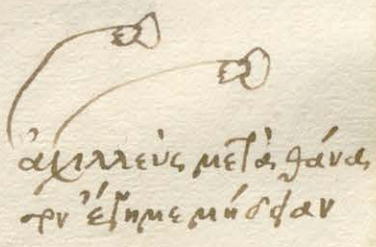 ἀχιλλεὺς μετὰ θάνα
τον ἔγημε μήδειαν